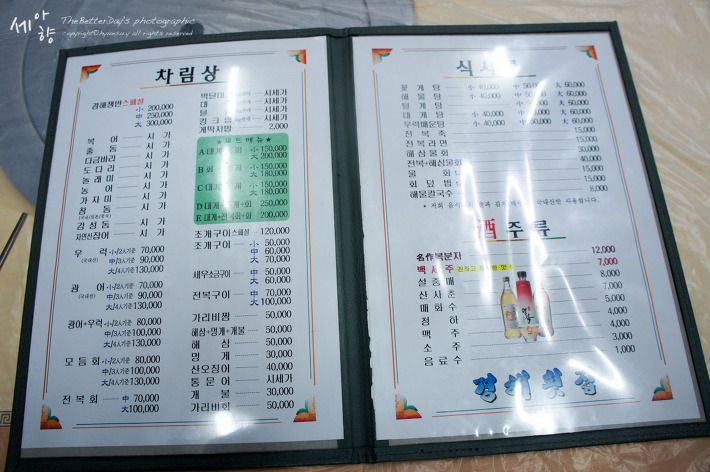 세아향
TheBetterDay's photographic
copyright©hyunsu.y all rights reserved
차림상
강해정민스페셜
小 200,000
中 250,000
大 300,000
복 어 — 시 가
줄 돔 — 시 가
다금바리 — 시 가
도 다 리 — 시 가
놀 래 미 — 시 가
농 어 — 시 가
가 자 미 — 시 가
참 돔 — 시 가
감 성 돔 — 시 가
자연산장어 — 시 가
우 럭 小/2人기준 70,000
(국내산) 中/3人기준 90,000
大/4人기준 130,000
광 어 小/2人기준 70,000
(국내산) 中/3人기준 90,000
大/4人기준 130,000
광어+우럭 小/2人기준 80,000
中/3人기준 100,000
大/4人기준 130,000
모 듬 회 小/2人기준 80,000
中/3人기준 100,000
大/4人기준 150,000
전 복 회 — 中 70,000
大 100,000
박달대 시세가
대 시세가
털 시세가
킹 크 시세가
게딱지밥 2,000
★세트메뉴★
A 대게 회 小 150,000
大 200,000
B 회 小 150,000
大 180,000
C 대게 小 150,000
大 180,000
D 대게 게+회 250,000
E 대게+전복회+회 200,000
조개구이스페셜 — 120,000
조개구이 小 50,000
中 60,000
大 70,000
새우소금구이 中 50,000
大 60,000
전복구이 中 70,000
大 100,000
가리비찜 50,000
해삼+멍게+개불 50,000
해 삼 50,000
멍 게 30,000
산오징어 40,000
돌 문 어 시세가
개 불 30,000
가리비회 50,000
식 사
꽃 게 탕 小 40,000 中 50,000 大 60,000
해 물 탕 小 40,000 中 50,000 大 60,000
털 게 탕 中 50,000 大 60,000
대 게 탕 小 40,000 中 50,000 大 60,000
우럭매운탕 小 40,000 60,000
전 복 죽 15,000
전복라면
해삼물회 15,000
전복+해삼물회
물 회 15,000
회 덮 밥 15,000
해물칼국수 8,000
酒주류
名作복분자 12,000
백 세 주 7,000
설 중 매 8,000
산 사 춘 7,000
매 화 수 5,000
청 하 4,000
맥 주 4,000
소 주 3,000
음 료 수 1,000